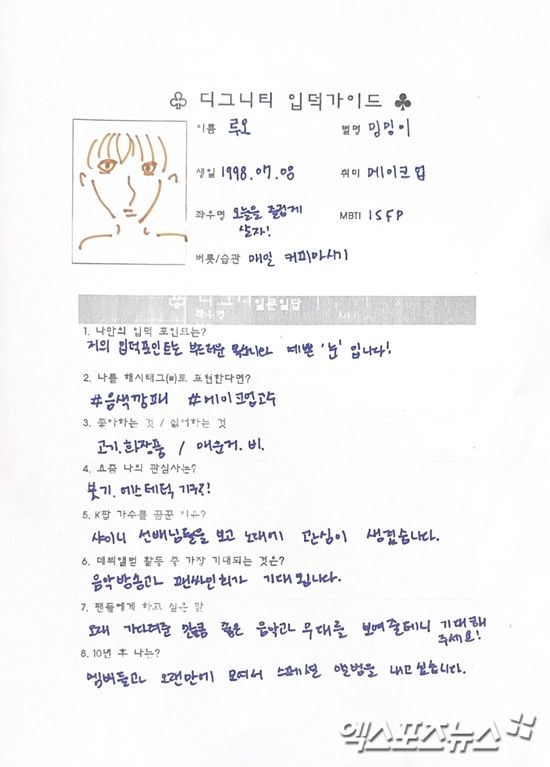 ♧ 디그니티 입덕가이드 ♣
이름 루오 별명 밍밍이
생일 1998.07.08 취미 메이크업
좌우명 오늘을 즐겁게 살자! MBTI ISFP
버릇/습관 매일 커피마시기
일문일답
1. 나만의 입덕 포인트는?
저의 입덕포인트는 부드러운 목소리와 예쁜 '눈' 입니다!
2. 나를 해시태그(#)로 표현한다면?
#음색깡패 #메이크업고수
3. 좋아하는 것 / 싫어하는 것
고기.화장품 / 매운거. 비.
4. 요즘 나의 관심사는?
붓기. 에스테틱 기계!
5. K팝 가수를 꿈꾼 이유?
샤이니 선배님들을 보고 노래에 관심이 생겼습니다.
6. 데뷔앨범 활동 중 가장 기대되는 것은?
음악방송과 팬싸인회가 기대 됩니다.
7. 팬들에게 하고 싶은 말
오래 기다려준 만큼 좋은 음악과 무대를 보여줄테니 기대해
주세요!
8. 10년 후 나는?
멤버들과 오랜만에 모여서 스페셜 앨범을 내고 싶습니다.
엑스포츠뉴스